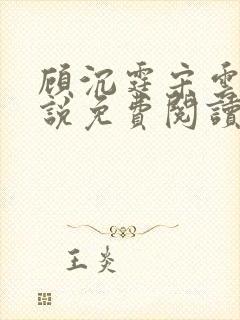 顾沉霆宋雲
說免費閱讀
王炎